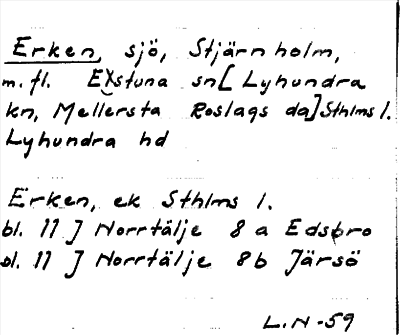 Erken, sjö, Stjärnholm,
m. fl. Estuna sn [Lyhundra
kn, Mellersta Roslags da] Sthlms l.
Lyhundra hd
Erken, ek Sthlms l.
bl. 11 J Norrtälje 8 a Edsbro
bl. 11 J Norrtälje 8b Järsö
L.N-59